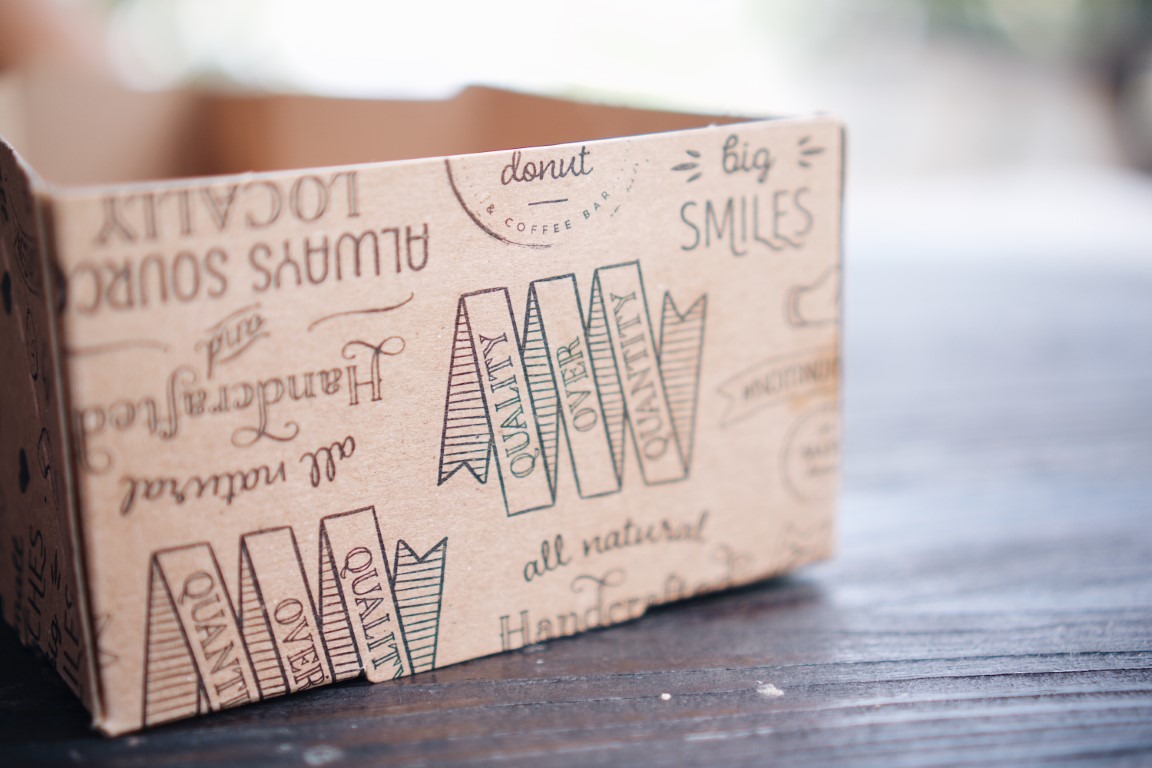 donut
& COFFEE BAR
big
SMILES
LOCALLY
ALWAYS SOURC
and
Handcrafted
all natural
QUALITY
OVER
QUANTITY
all natural
Handcrafted
QUANT
OVER
QUALIT